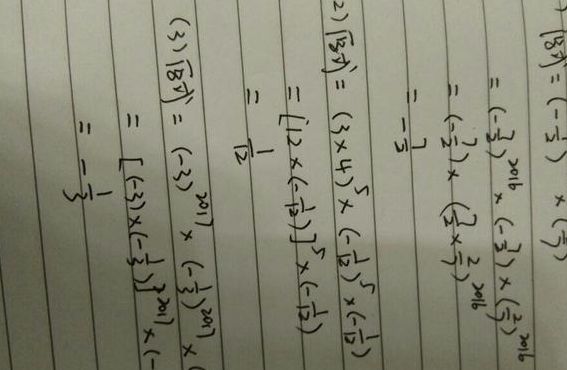 ) 原式 = (-7/2) × (2/7)
= (-7/2)^2016 × (-7/2) × (2/7)^2016
= (-7/2) × (7/2 × 2/7)^2016
= -7/2
2) 原式 = (3×4)^5 × (-1/12)^5 × (-1/12)
= [12×(-1/12)]^5 × (-1/12)
= 1/12
(3) 原式 = (-3)^2017 × (-1/3)^2017 × (
= [(-3)×(-1/3)]^2017 × (-
= -1/3